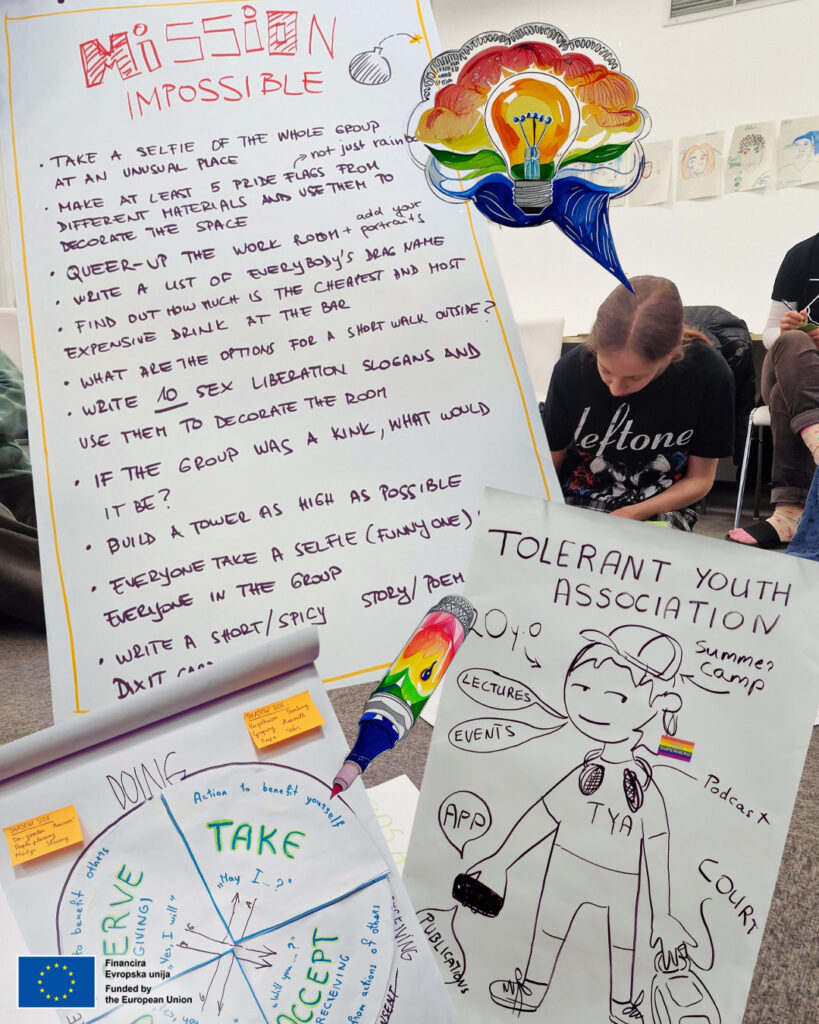 MISSION
IMPOSSIBLE
• TAKE A SELFIE OF THE WHOLE GROUP
AT AN UNUSUAL PLACE
not just rainbo
• MAKE AT LEAST 5 PRIDE FLAGS FROM
DIFFERENT MATERIALS AND USE THEM TO
DECORATE THE SPACE
• QUEER-UP THE WORK ROOM + add your
portraits
• WRITE A LIST OF EVERYBODY'S DRAG NAME
• FIND OUT HOW MUCH IS THE CHEAPEST AND MOST
EXPENSIVE DRINK AT THE BAR
• WHAT ARE THE OPTIONS FOR A SHORT WALK OUTSIDE?
• WRITE 10 SEX LIBERATION SLOGANS AND
USE THEM TO DECORATE THE ROOM
• IF THE GROUP WAS A KINK, WHAT WOULD
IT BE?
• BUILD A TOWER AS HIGH AS POSSIBLE
• EVERYONE TAKE A SELFIE (FUNNY ONE)
EVERYONE IN THE GROUP
• WRITE A SHORT/SPICY STORY/POEM
DIXIT
leftone
TOLERANT YOUTH
ASSOCIATION
20 y.o
Summer
Camp
LECTURES
EVENTS
Podcast
APP
TYA
COURT
PUBLICATIONS
SHADOW SIDE
SHADOW SIDE
DOING
Action to benefit yourself
TAKE
"May I...?"
to benefit others
ERVE
GIVING)
"Yes, I will"
"Will you...?"
CCEPT
RECIEVING
from actions of others
Financira
Evropska unija
Funded by
the European Union